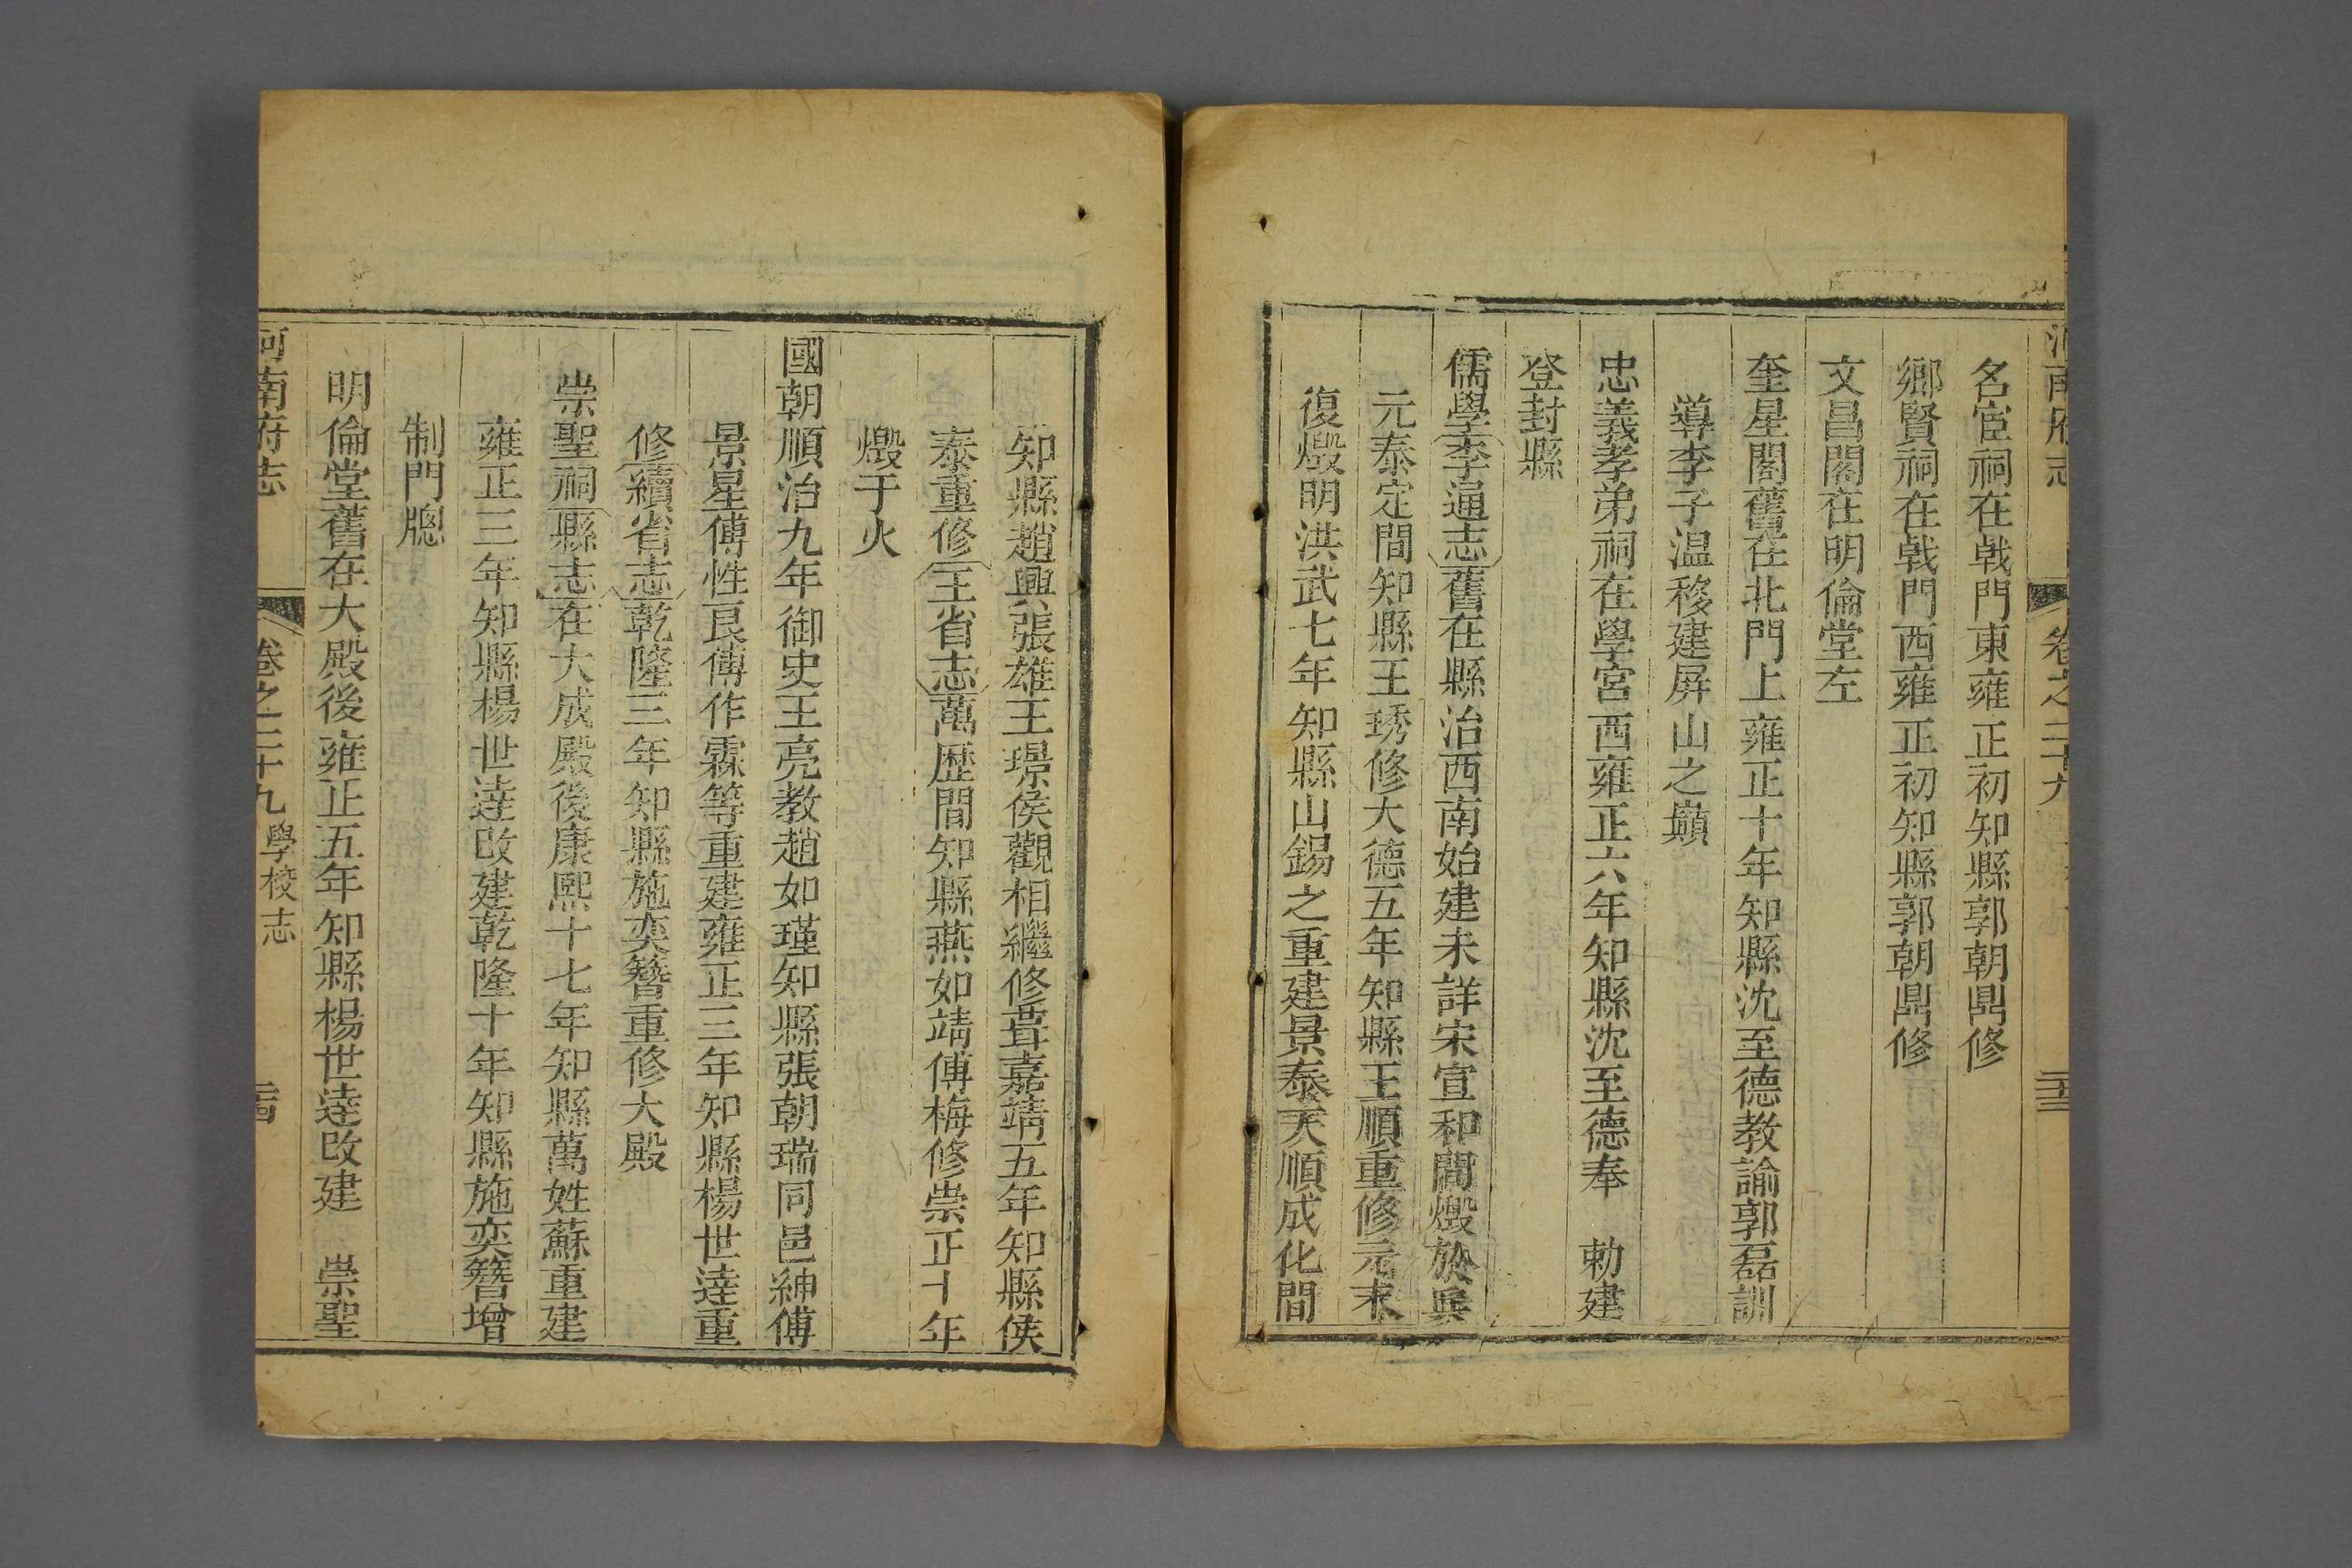 河南府志 卷之二十九
名宦祠在戟門東雍正初知縣郭朝鼎修
鄉賢祠在戟門西雍正初知縣郭朝鼎修
文昌閣在明倫堂左
奎星閣舊在北門上雍正十年知縣沈至德教諭郭磊訓
導李子温移建屏山之巔
忠義孝弟祠在學宮西雍正六年知縣沈至德奉 勅建
登封縣
儒學李通志舊在縣治西南始建未詳宋宣和間燬於兵
元泰定間知縣王琇修大德五年知縣王順重修元末
復燬明洪武七年知縣山錫之重建景泰天順成化間
知縣趙興張雄王璟侯觀相繼修葺嘉靖五年知縣侯
泰重修王省志萬歷間知縣燕如靖傅梅修崇正十年
燬于火
國朝順治九年御史王亮教趙如瑾知縣張朝瑞同邑紳傅
景星傅性良傅作霖等重建雍正三年知縣楊世逹重
修續省志乾隆三年知縣施奕簪重修大殿
崇聖祠縣志在大成殿後康熙十七年知縣萬姓蘇重建
雍正三年知縣楊世逹改建乾隆十年知縣施奕簪增
制門牕
明倫堂舊在大殿後雍正五年知縣楊世逹改建 崇聖
河南府志 卷之二十九 學校志 二十四